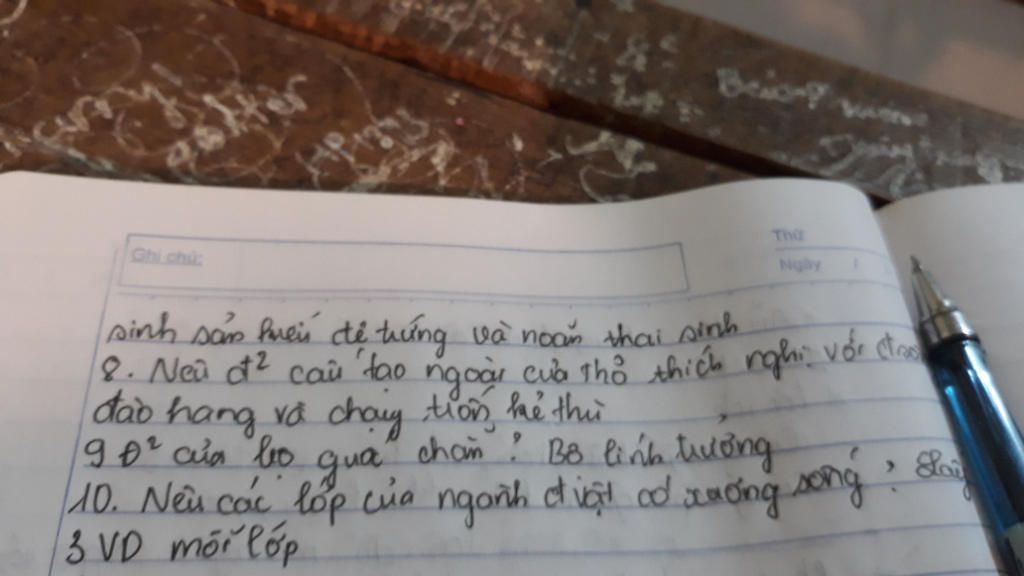 Ghi chú:
Thứ
Ngày / 
sinh sản đẻ trứng và noãn thai sinh
8. Nêu đ² cấu tạo ngoài của thỏ thích nghi với
đào hang và chạy trốn kẻ thù
9 Đ² của bộ guốc chẵn? Bộ linh trưởng
10. Nêu các lớp của ngành đ vật có xương sống?
3 VD mỗi lớp